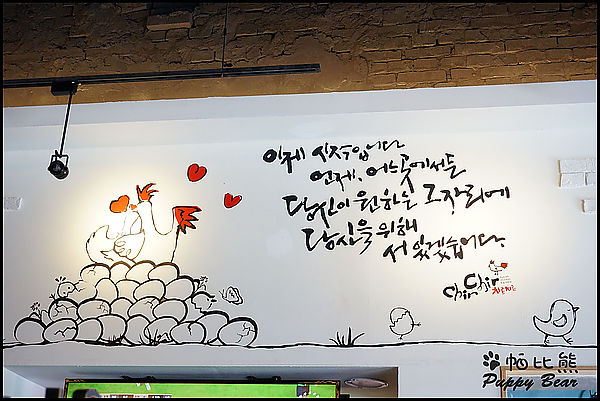 이제 시작입니다
언제, 어느곳에서든
당신이 원하는 그자리에
당신을 위해
서 있겠습니다.
Chir Chir
帕比熊
Puppy Bear